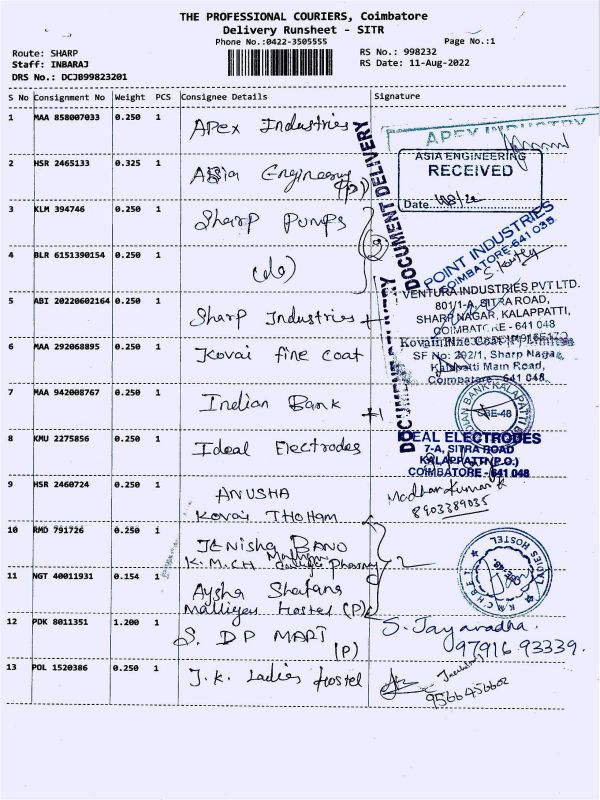 THE PROFESSIONAL COURIERS, Coimbatore
Delivery Runsheet - SITR
Phone No.:0422-3505555
Page No.:1
Route: SHARP
RS No.: 998232
Staff: INBARAJ
RS Date: 11-Aug-2022
DRS No.: DCJB99823201
S No Consignment No Weight PCS Consignee Details Signature
1 MAA 858007033 0.250 1 Apex Industries
APEX INDUSTRY
2 HSR 2465133 0.325 1 Asia Engineering (p)
ASIA ENGINEERING
RECEIVED
Date
DOCUMENT DELIVERY
3 KLM 394746 0.250 1 Sharp Pumps
POINT INDUSTRIES
COIMBATORE-641 035.
4 BLR 6151390154 0.250 1 (do)
5 ABI 20220602164 0.250 1 Sharp Industries
VENTURA INDUSTRIES PVT LTD.
801/1-A, SITRA ROAD,
SHARP NAGAR, KALAPPATTI,
COIMBATORE - 641 048
6 MAA 292068895 0.250 1 Kovai fine coat
Kovai Fine Coat (P) Limited
SF No: 202/1, Sharp Nagar,
Kalapatti Main Road,
Coimbatore - 641 048.
7 MAA 942008767 0.250 1 Indian Bank
8 KMU 2275856 0.250 1 Ideal Electrodes
IDEAL ELECTRODES
7-A, SITRA ROAD
KALAPPATTI (P.O.)
COIMBATORE - 641 048
9 HSR 2460724 0.250 1 ANUSHA
Kovai THOTTAM
Madhan Kumar R
8903389035
10 RMD 791726 0.250 1 JENISHA BANO
K.M.CH College Pharmacy
11 NGT 40011931 0.154 1 Aysha Shafana
Malliyai Hostel (P)
12 PDK 8011351 1.200 1 S. DP MART
(P)
S. Jayaradha.
97916 93339.
13 POL 1520386 0.250 1 J.K. Ladies Hostel
9566456602